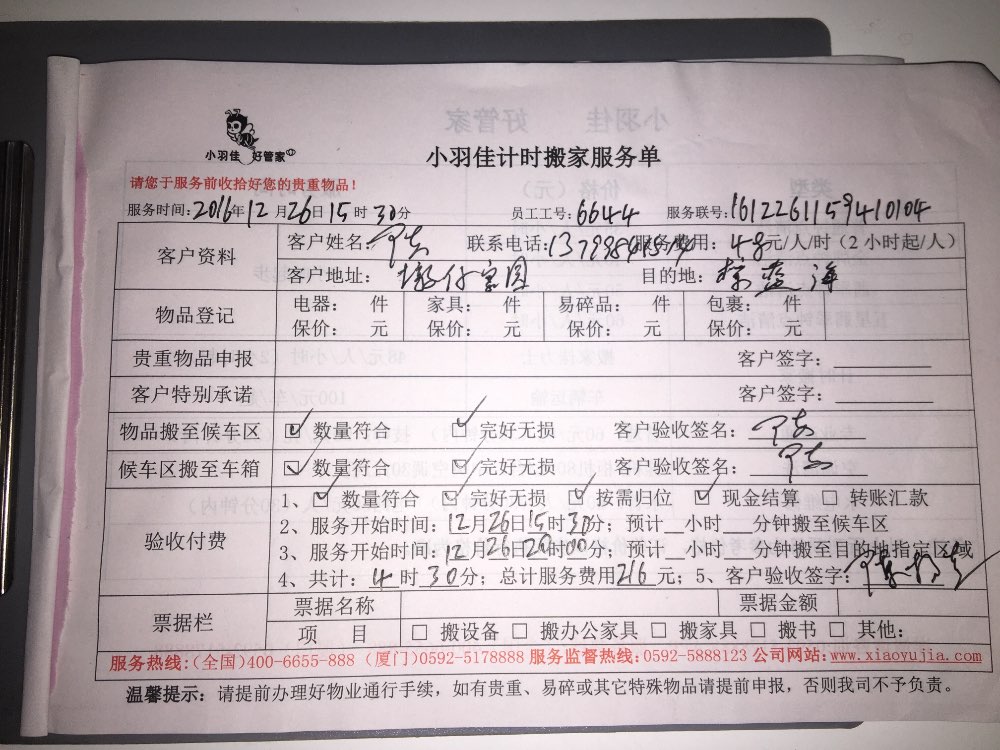 小羽佳 好管家
小羽佳计时搬家服务单
请您于服务前收拾好您的贵重物品！
服务时间：2016年12月26日15时30分 员工工号：6644 服务联号：161226115941​0104
客户资料 客户姓名： 联系电话： 服务费用：48元/人/时（2小时起/人）
客户地址： 目的地：
物品登记 电器： 件 家具： 件 易碎品： 件 包裹： 件
保价： 元 保价： 元 保价： 元 保价： 元
贵重物品申报 客户签字：
客户特别承诺 客户签字：
物品搬至候车区 ☑ 数量符合 ☑ 完好无损 客户验收签名：
候车区搬至车箱 ☑ 数量符合 ☑ 完好无损 客户验收签名：
验收付费 1、☑ 数量符合 ☑ 完好无损 ☑ 按需归位 ☑ 现金结算 □ 转账汇款
2、服务开始时间：12月26日15时30分；预计__小时__分钟搬至候车区
3、服务开始时间：12月26日20时00分；预计__小时__分钟搬至目的地指定区域
4、共计：4时30分；总计服务费用216元；5、客户验收签字：
票据栏 票据名称 票据金额
项 目 □ 搬设备 □ 搬办公家具 □ 搬家具 □ 搬书 □ 其他：
服务热线:(全国)400-6655-888 (厦门)0592-5178888 服务监督热线:0592-5888123 公司网站:www.xiaoyujia.com
温馨提示：请提前办理好物业通行手续，如有贵重、易碎或其它特殊物品请提前申报，否则我司不予负责。